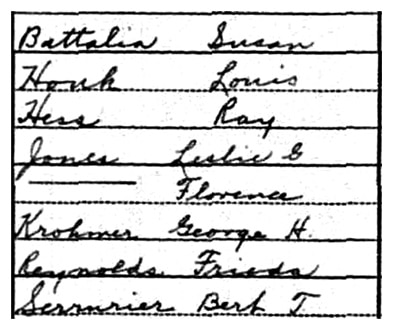 Battalia Susan
Houk Louis
Hess Ray
Jones Leslie G
——— Florence
Krohmer George H.
Reynolds Frieda
Serrurier Bert T